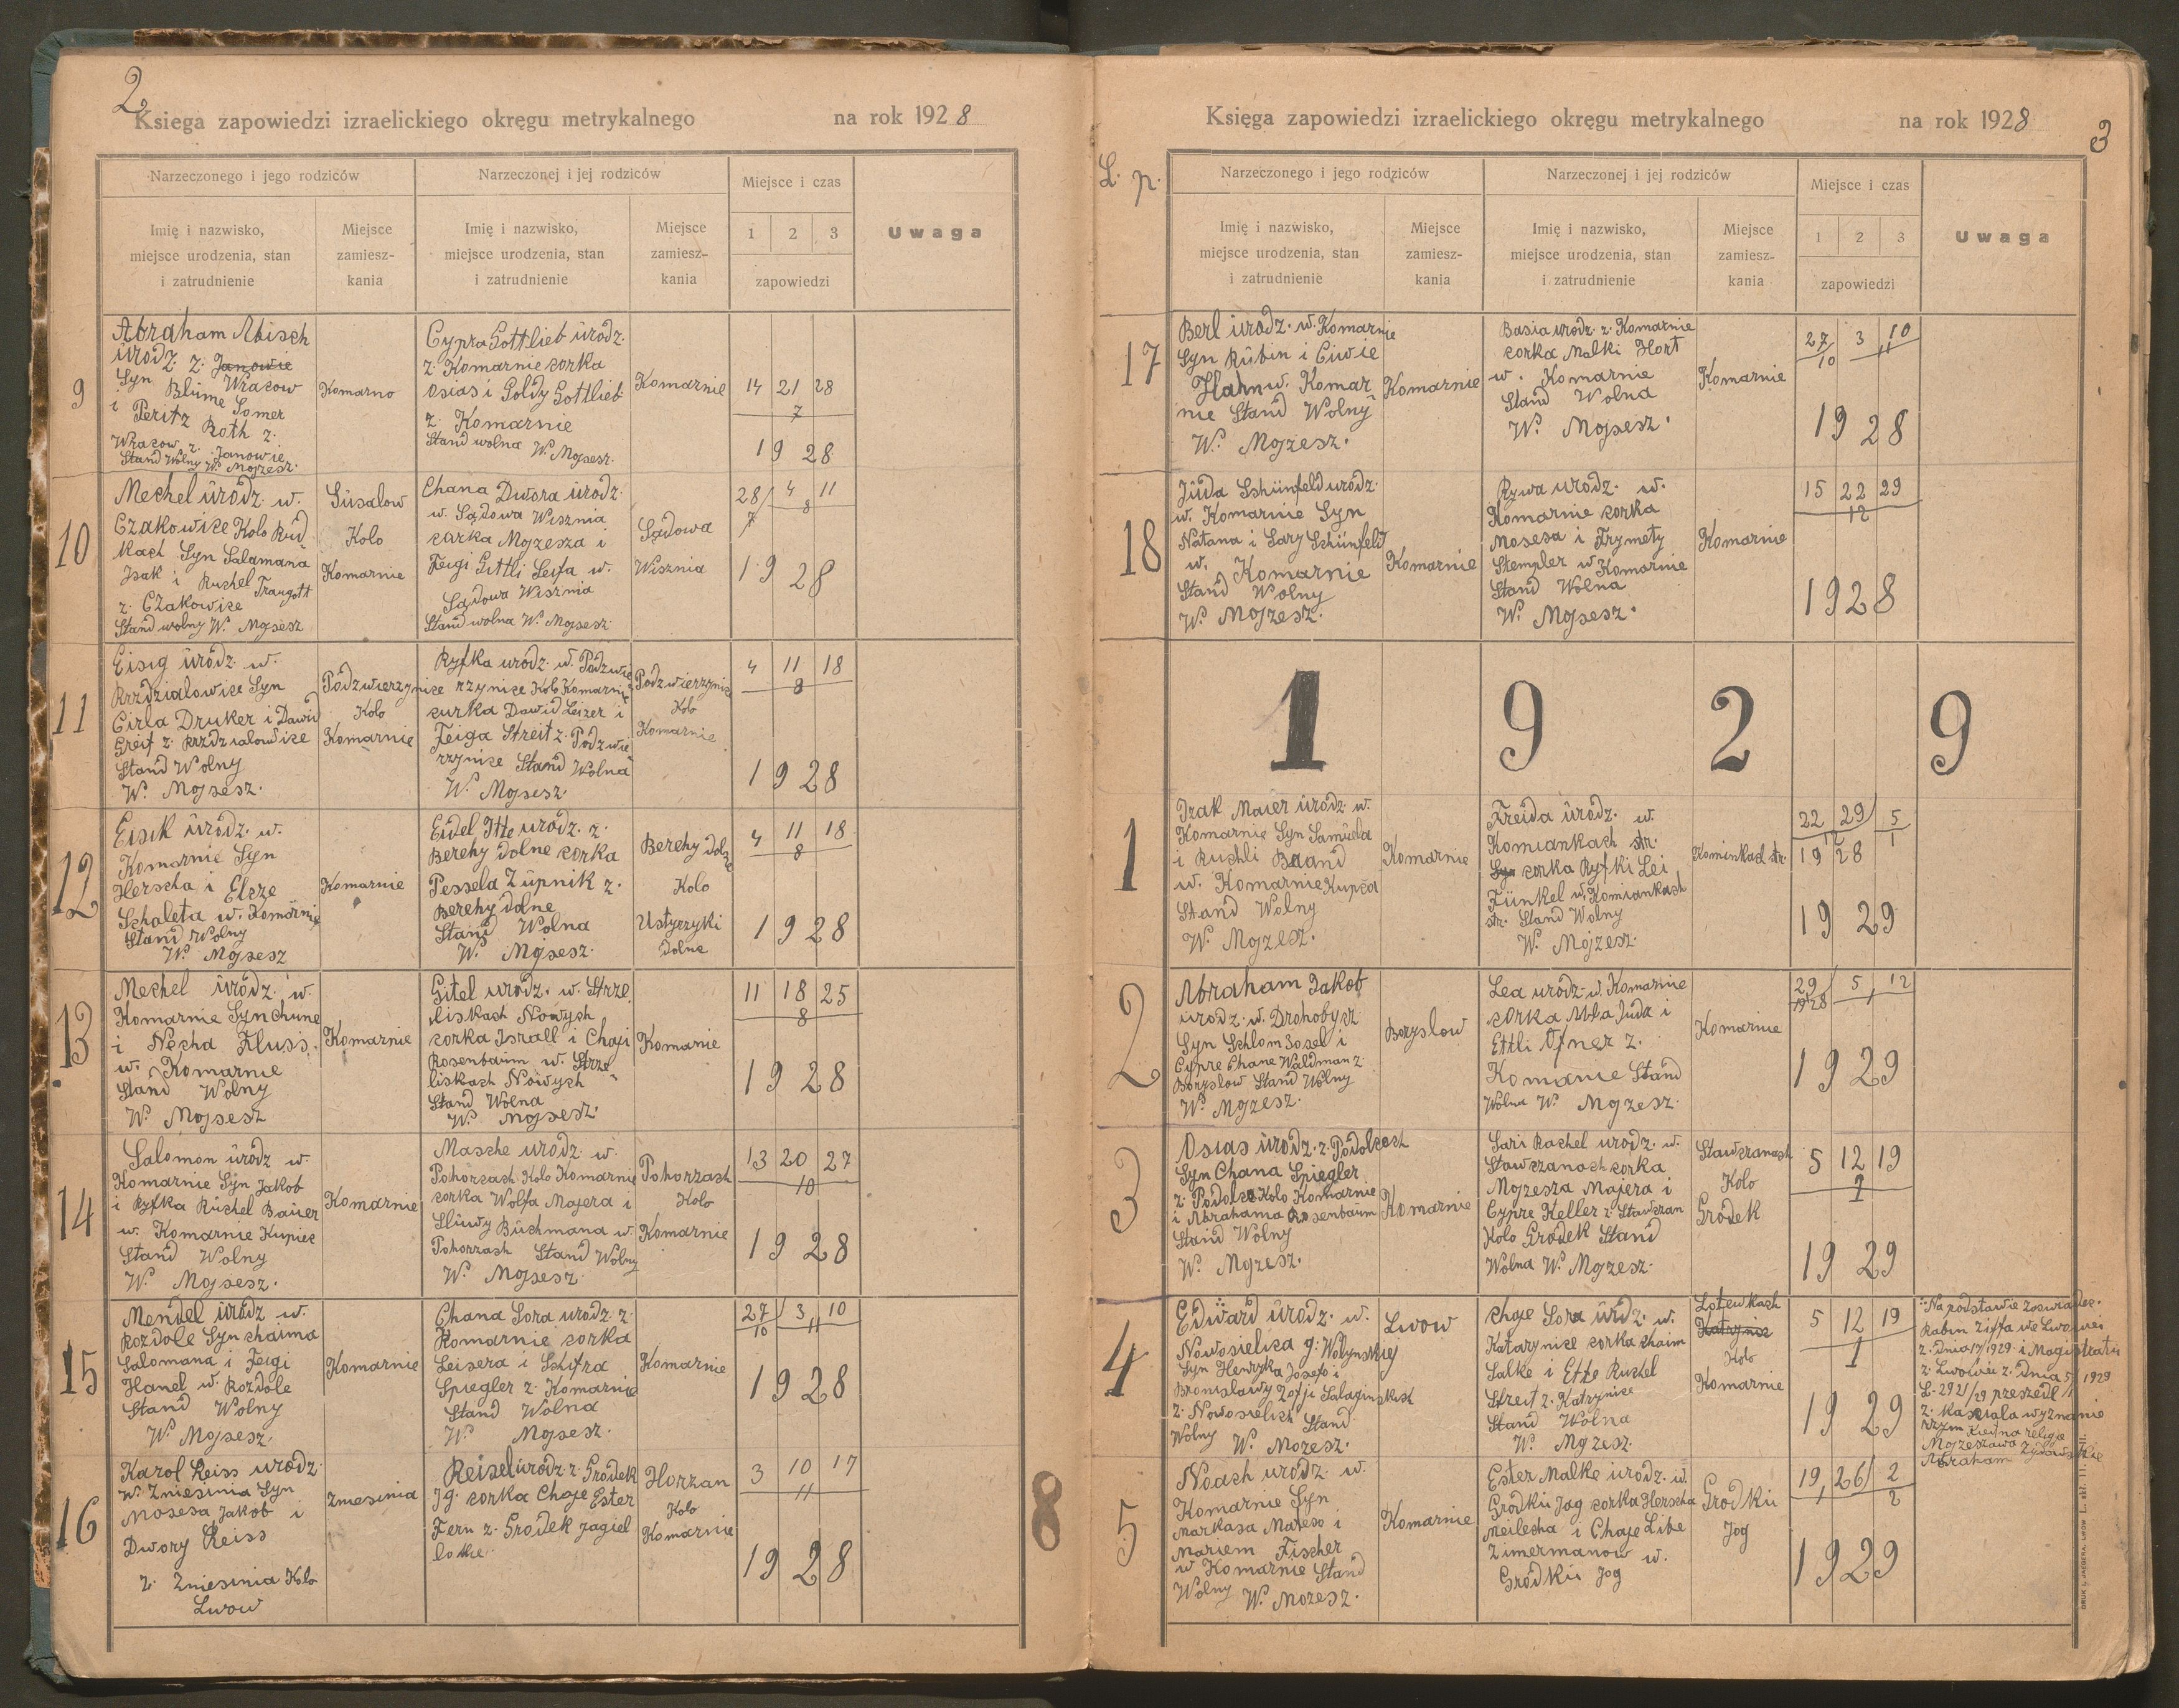 2
Księga zapowiedzi izraelickiego okręgu metrykalnego na rok 1928
Narzeczonego i jego rodziców
Narzeczonej i jej rodziców
Miejsce i czas
Uwaga
Imię i nazwisko,
miejsce urodzenia, stan
i zatrudnienie
Miejsce
zamiesz-
kania
Imię i nazwisko,
miejsce urodzenia, stan
i zatrudnienie
Miejsce
zamiesz-
kania
1 2 3
zapowiedzi
9
Abraham Abisch
ürodz z. Janowie
Syn Blüme Wraców
i Peritz Somer
Roth z.
Wracow z. Janowie
Stand Wolny W. Mojzesz.
Komarno
Cypra Gottlieb ürodz.
z. Komarnie corka
Osias i Goldy Gottlieb
z. Komarnie
Stand wolna W. Mojsesz.
Komarnie
14 21 28
7
1928
10
Mechel ürodz. w.
Czakowice Kolo Rüd
kach Syn Salamana
Isak i Ruchel Traugott
z. Czakowice
Stand wolny W. Mojsesz
Süsalow
Kolo
Komarnie
Chana Dwora ürodz.
w. Sądowa Wisznia
corka Mojzesza i
Feigi Gittli Leifa w.
Sądowa Wisznia
Stand wolna W. Mojsesz.
Sądowa
Wisznia
28/7 4 11
8
1928
11
Eisig ürodz. w.
Rzdzialowice Syn
Cirla Druker i Dawid
Greif z. Rzdzialowice
Stand Wolny
W. Mojsesz.
Podzwierzynice
Kolo
Komarnie
Ryfka urodz. w. Podzwie
rzynice Kolo Komarnie
curka Dawid Leizer i
Feiga Streit z. Podzwie
rzynice Stand Wolna
W. Mojsesz.
Podzwierzynice
Kolo
Komarnie
4 11 18
8
1928
12
Eisik ürodz. w.
Komarnie Syn
Herscha i Elcze
Schaleta w. Komarnie
Stand Wolny
W. Mojsesz
Komarnie
Eidel Itte urodz. z.
Berehy dolne corka
Pessela Züpnik z.
Berehy dolne
Stand Wolna
W. Mojsesz.
Berehy dolne
Kolo
Ustyrzyki
dolne
4 11 18
8
1928
13
Mechel ürodz. w.
Komarnie Syn Chune
i Necha Fluss.
w. Komarnie
Stand Wolny
W. Mojsesz
Komarnie
Gitel urodz. w. Strze
liskach Nowych
corka Israll i Chaji
Rosenbaum w. Strze
liskach Nowych
Stand Wolna
W. Mojsesz.
Komanie
11 18 25
8
1928
14
Salomon ürodz w.
Komarnie Syn Jakob
i Ryfka Rüchel Bauer
w. Komarnie Kupiec
Stand Wolny
W. Mojsesz.
Komarnie
Masche urodz. w.
Pohorcach Kolo Komarnie
corka Wolfa Majera i
Sliuwy Büchmana w.
Pohorzach Stand Wolny
W. Mojsesz
Pohorzach
Kolo
Komarnie
13 20 27
10
1928
15
Mendel ürodz w.
Rozdole Syn chaima
Salomana i Feigi
Hanel w. Rozdole
Stand Wolny
W. Mojsesz.
Komarnie
Chana Sora urodz z.
Komarnie corka
Leisera i Schifra
Spiegler z. Komarnie
Stand Wolna
W. Mojsesz.
Komarnie
27/10 3 10
11
1928
16
Karol Reiss urodz.
w. Zniesinia Syn
Mosesa Jakob i
Dwory Reiss
z. Zniesinia Kolo
Lwow
Zniesinia
Reisel ürodz z. Grodek
Jg. corka Choje Ester
Fern z. Grodek Jagiel
lońke.
Horzan
Kolo
Komarnie
3 10 17
11
1928
8
3
Księga zapowiedzi izraelickiego okręgu metrykalnego na rok 1928
L. p.
Narzeczonego i jego rodziców
Narzeczonej i jej rodziców
Miejsce i czas
Uwaga
Imię i nazwisko,
miejsce urodzenia, stan
i zatrudnienie
Miejsce
zamiesz-
kania
Imię i nazwisko,
miejsce urodzenia, stan
i zatrudnienie
Miejsce
zamiesz-
kania
1 2 3
zapowiedzi
17
Berl ürodz. w. Komarnie
Syn Rübin i Ciwie
Hahn w. Komar
nie Stand Wolny
W. Mojzesz.
Komarnie
Basia urodz. z. Komarnie
corka Malki Hort
w. Komarnie
Stand Wolna
W. Mojsesz.
Komarnie
27/10 3 10
11
1928
18
Jüda Schünfeld urodz.
w. Komarnie Syn
Natana i Sary Schünfeld
w. Komarnie
Stand Wolny
W. Mojzesz.
Komarnie
Rywa urodz. w.
Komarnie corka
Mosesa i Frymety
Stempler w Komarnie
Stand Wolna
W. Mojsesz.
Komarnie
15 22 29
12
1928
1 9 2 9
1
Izak Maier ürodz. w.
Komarnie Syn Samüela
i Ruchli Brand
w. Komarnie Kupca
Stand Wolny
W. Mojzesz.
Komarnie
Freida ürodz. w.
Komiankach str.
Syn corka Ryfki Lei
Fünkel w. Komiankach
str. Stand Wolny
W. Mojzesz.
Kominkach str.
22 29/12 5/1
1928
1929
2
Abraham Jakob
urodz. w. Drohobycz
Syn Schlom Josel i
Cypre Chane Waldman z.
Boryslow Stand Wolny
W. Mojzesz.
Boryslow
Lea urodz. w. Komarnie
corka Abba Juda i
Ettli Ofner z.
Komarnie Stand
Wolna W. Mojzesz.
Komarnie
29/1928 5 12
1
1929
3
Osias ürodz. z. Podolcach
Syn Chana Spiegler
z. Podolce Kolo Komarnie
i Abrahama Rosenbaum
Stand Wolny
W. Mojzesz.
Komarnie
Sari Rachel urodz. w.
Stawczanach corka
Mojzesza Majera i
Cypre Keller z. Stawczan
Kolo Grodek Stand
Wolna W. Mojzesz.
Stawczanach
Kolo
Grodek
5 12 19
1
1929
4
Edward ürodz. w.
Nowosielica g. Wolynskiej
Syn Henryka Josefo i
Bronislawy Zofji Salaginskich
z. Nowosielich Stand
Wolny W. Mozesz.
Lwow
Choje Sora ürdz. w.
Katarynice corka Chaim
Salke i Ette Ruchel
Streit z. Katrynice
Stand Wolna
W. Mojzesz.
Katrynic
Kolo
Komarnie
5 12 19
1
1929
Na podstawie zoswiadec.
Rabin Ziffa we Lwowei
z. Dnia 17/1929 i Magistratu
z. Lwowie z. Dnia 5/1 1929
L. 292/29 przeszedl
z. Kasciala wyznanie
rzym na religje
Mojzeszawo Zydowskie
Abraham
5
Noach urodz. w.
Komarnie Syn
Markasa Mateso i
Mariem Fischer
w Komarnie Stand
Wolny W. Mozesz.
Komarnie
Ester Malke ürodz. w.
Grodkü Jag corka Herscha
Meilecha i Choje Libe
Zimermanow w.
Grodkü Jog
Grodkü
Jog
19 26/1 2/2
1929